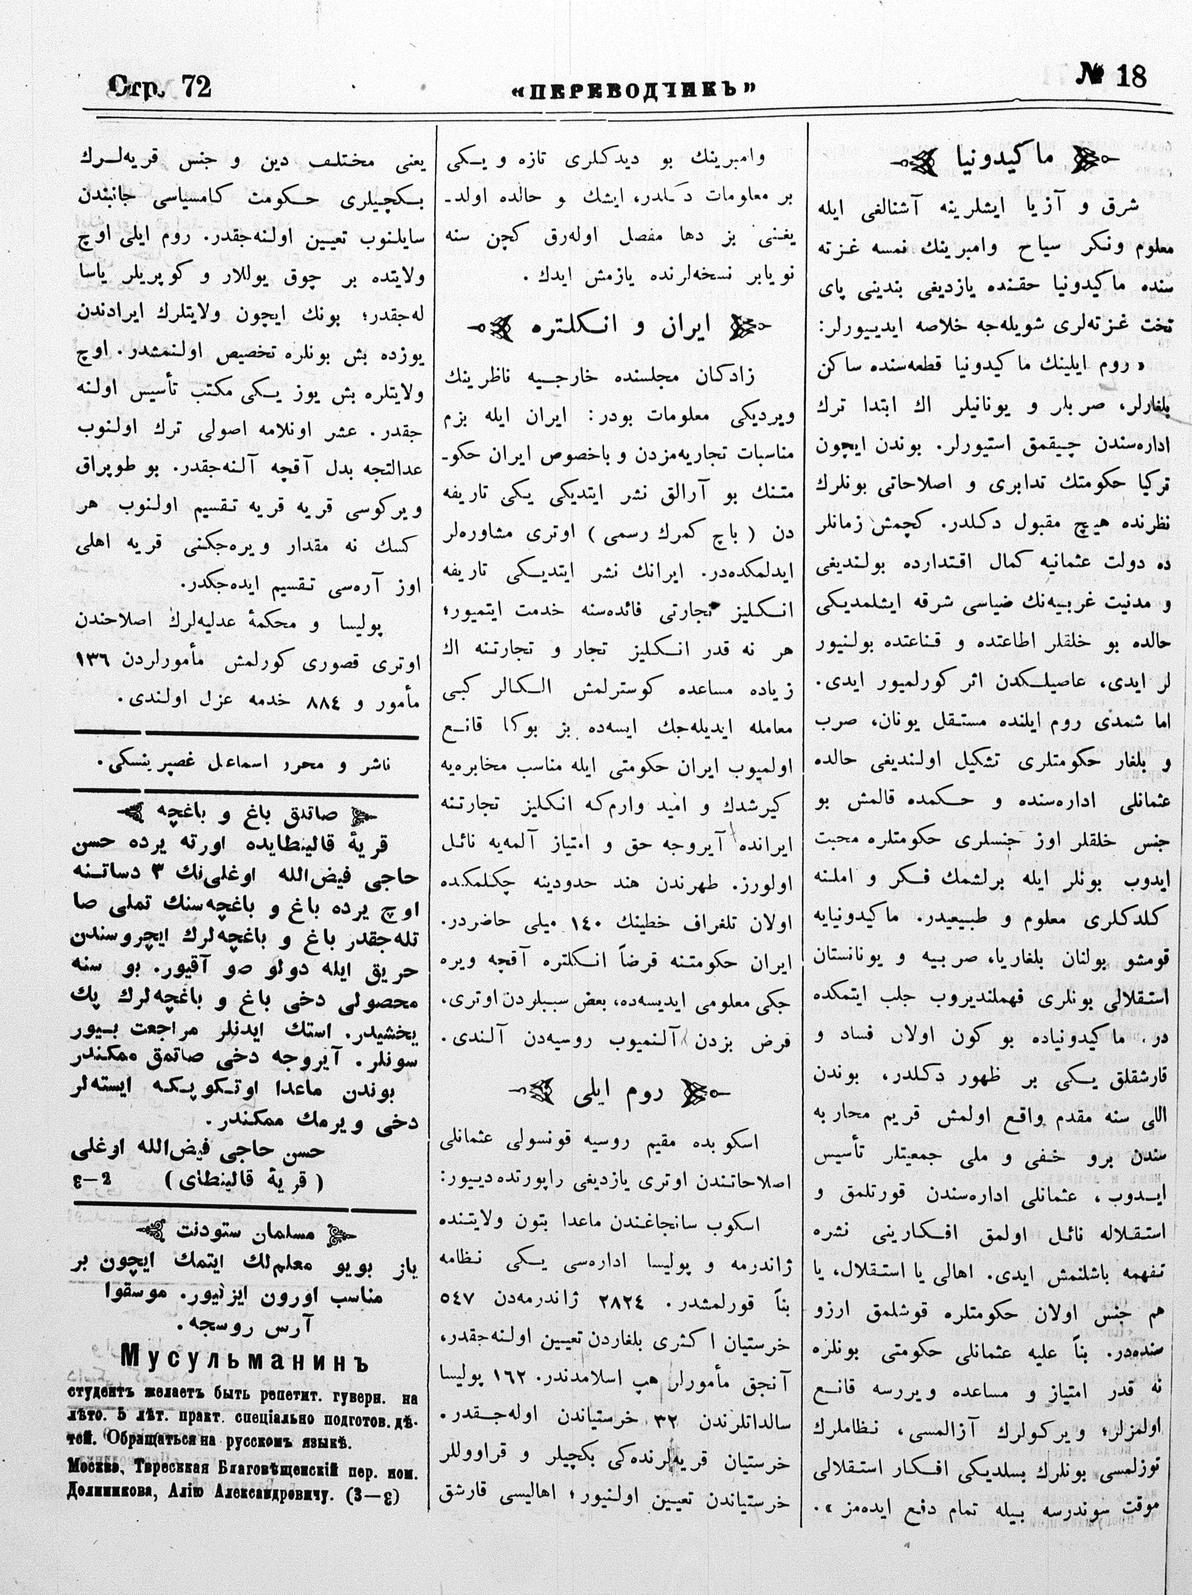 Стр. 72
«ПЕРЕВОДЧИКЪ»
№ 18
ماكيدونيا
شرق و آزيا ايشلرينه آشنالغى ايله
معلوم ونكر سياح وامبرينك نمسه غزته
سنده ماكيدونيا حقنده يازديغى بندينى پاى
تخت غزته‌لرى شويله‌جه خلاصه ايدييورلر:
« روم ايلينك ماكيدونيا قطعه‌سنده ساكن
بلغارلر، صربلر و يونانيلر اك ابتدا ترك
اداره‌سندن چيقمق استيورلر. بوندن ايچون
تركيا حكومتك تدابرى و اصلاحاتى بونلرك
نظرنده هيچ مقبول دكلدر. كچمش زمانلر
ده دولت عثمانيه كمال اقتدارده بولنديغى
و مدنيت غربيه‌نك ضياسى شرقه ايشلمديكى
حالده بو خلقلر اطاعتده و قناعتده بولنيور
لر ايدى، عاصيلكدن اثر كورلميور ايدى.
اما شمدى روم ايلنده مستقل يونان، صرب
و بلغار حكومتلرى تشكيل اولنديغى حالده
عثمانلى اداره‌سنده و حكمده قالمش بو
جنس خلقلر اوز جنسلرى حكومتلره محبت
ايدوب بونلر ايله برلشمك فكر و املنه
كلدكلرى معلوم و طبيعيدر. ماكيدونيايه
قومشو بولنان بلغاريا، صربيه و يونانستان
استقلالى بونلرى فهملنديروب جلب ايتمكده
در. ماكيدونياده بو كون اولان فساد و
قارشقلق يكى بر ظهور دكلدر، بوندن
اللى سنه مقدم واقع اولمش قريم محاربه
سندن برو خفى و ملى جمعيتلر تأسيس
ايدوب، عثمانلى اداره‌سندن قورتلمق و
استقلاله نائل اولمق افكارينى نشره
تفهمه باشلنمش ايدى. اهالى يا استقلال، يا
هم جنس اولان حكومتلره قوشلمق ارزو
سنده‌در. بناً عليه عثمانلى حكومتى بونلره
نه قدر امتياز و مساعده ويررسه قانع
اولمزلر؛ ويركولرك آزالمسى، نظاملرك
توزلمسى بونلرك بسلديكى افكار استقلالى
موقت سوندرسه بيله تمام دفع ايده‌مز ».
وامبرينك بو ديدكلرى تازه و يكى
بر معلومات دكلدر، ايشك و حالده اولد‌ـ
يغنى بز دها مفصل اوله‌رق كچن سنه
نويابر نسخه‌لرنده يازمش ايدك.
ايران و انكلتره
زادكان مجلسنده خارجيه ناظرينك
ويرديكى معلومات بودر: ايران ايله بزم
مناسبات تجاريه‌مزدن و باخصوص ايران حكو‌ـ
متنك بو آرالق نشر ايتديكى يكى تاريفه
دن (باج كمرك رسمى) اوترى مشاوره‌لر
ايدلمكده‌در. ايرانك نشر ايتديكى تاريفه
انكليز تجارتى فائده‌سنه خدمت ايتميور؛
هر نه قدر انكليز تجار و تجارتنه اك
زياده مساعده كوسترلمش الكالر كبى
معامله ايديله‌جك ايسه‌ده بز بوكا قانع
اولميوب ايران حكومتى ايله مناسب مخابره‌يه
كيرشدك و اميد وارم‌كه انكليز تجارتنه
ايرانده آيروجه حق و امتياز آلمه‌يه نائل
اولورز. طهرندن هند حدودينه چكلمكده
اولان تلغراف خطينك ١٤٠ ميلى حاضردر.
ايران حكومتنه قرضاً انكلتره آقچه ويره
جكى معلومى ايديسه‌ده، بعض سببلردن اوترى،
قرض بزدن آلنميوب روسيه‌دن آلندى.
روم ايلى
اسكوبده مقيم روسيه قونسولى عثمانلى
اصلاحاتندن اوترى يازديغى راپورتده دييور:
اسكوب سانجاغندن ماعدا بتون ولايتنده
ژاندرمه و پوليسا اداره‌سى يكى نظامه
بناً قورلمشدر. ٢٨٢٤ ژاندرمه‌دن ٥٤٧
خرستيان اكثرى بلغاردن تعيين اولنه‌جقدر،
آنجق مأمورلر هپ اسلامدندر. ١٦٢ پوليسا
سالداتلرندن ٣٢ خرستياندن اوله‌جقدر.
خرستيان قريه‌لرنده‌كى بكچيلر و قراووللر
خرستياندن تعيين اولنيور؛ اهاليسى قارشق
يعنى مختلف دين و جنس قريه‌لرك
بكچيلرى حكومت كامسياسى جانبندن
سايلنوب تعيين اولنه‌جقدر. روم ايلى اوچ
ولايتده بر چوق يوللار و كوپريلر ياسا
له‌جقدر؛ بونك ايچون ولايتلرك ايرادندن
يوزده بش بونلره تخصيص اولنمشدر. اوچ
ولايتلره بش يوز يكى مكتب تأسيس اولنه
جقدر. عشر اونلامه اصولى ترك اولنوب
عدالتجه بدل آقچه آلنه‌جقدر. بو طوپراق
ويركوسى قريه قريه تقسيم اولنوب هر
كسك نه مقدار ويره‌جكنى قريه اهلى
اوز آره‌سى تقسيم ايده‌جكدر.
پوليسا و محكمهٔ عدليه‌لرك اصلاحندن
اوترى قصورى كورلمش مأمورلردن ١٣٦
مأمور و ٨٨٤ خدمه عزل اولندى.
ناشر و محرر اسماعيل غصپرينسكى.
صاتلق باغ و باغچه
قريهٔ قالينطايده اورته يرده حسن
حاجى فيض‌الله اوغلى‌نك ٣ دساتنه
اوچ يرده باغ و باغچه‌سنك تملى صا
تله‌جقدر باغ و باغچه‌لرك ايچروسندن
حريق ايله دولو صو آقيور. بو سنه
محصولى دخى باغ و باغچه‌لرك پك
يخشيدر. استك ايدنلر مراجعت بيور
سونلر. آيروجه دخى صاتمق ممكندر
بوندن ماعدا اوتكوپكه ايسته‌لر
دخى ويرمك ممكندر.
حسن حاجى فيض‌الله اوغلى
(قريهٔ قالينطاى) 2—3
مسلمان ستودنت
ياز بويو معلم‌لك ايتمك ايچون بر
مناسب اورون ايزليور. موسقوا
آرس روسجه.
Мусульманинъ
студентъ желаетъ быть репетит. гуверн. на
лѣто. 5 лѣт. практ. спецiально подготов. дѣ-
тей. Обращаться на русскомъ языкѣ.
Москва, Тверская Благовѣщенскiй пер. ном.
Долинникова, Алiю Александровичу. (3—3)